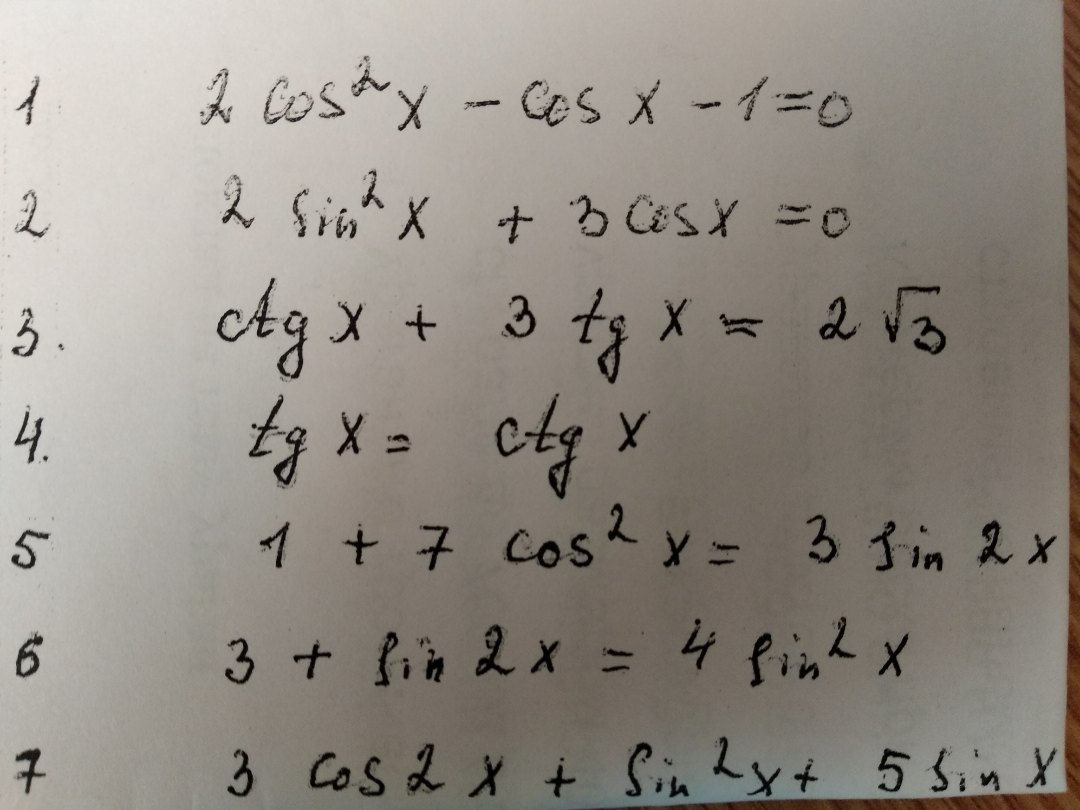 1 2 cos²x - cos x - 1 = 0
2 2 sin²x + 3 cos x = 0
3. ctg x + 3 tg x = 2√3
4. tg x = ctg x
5 1 + 7 cos²x = 3 sin 2x
6 3 + sin 2x = 4 sin²x
7 3 cos 2x + sin²x + 5 sin x